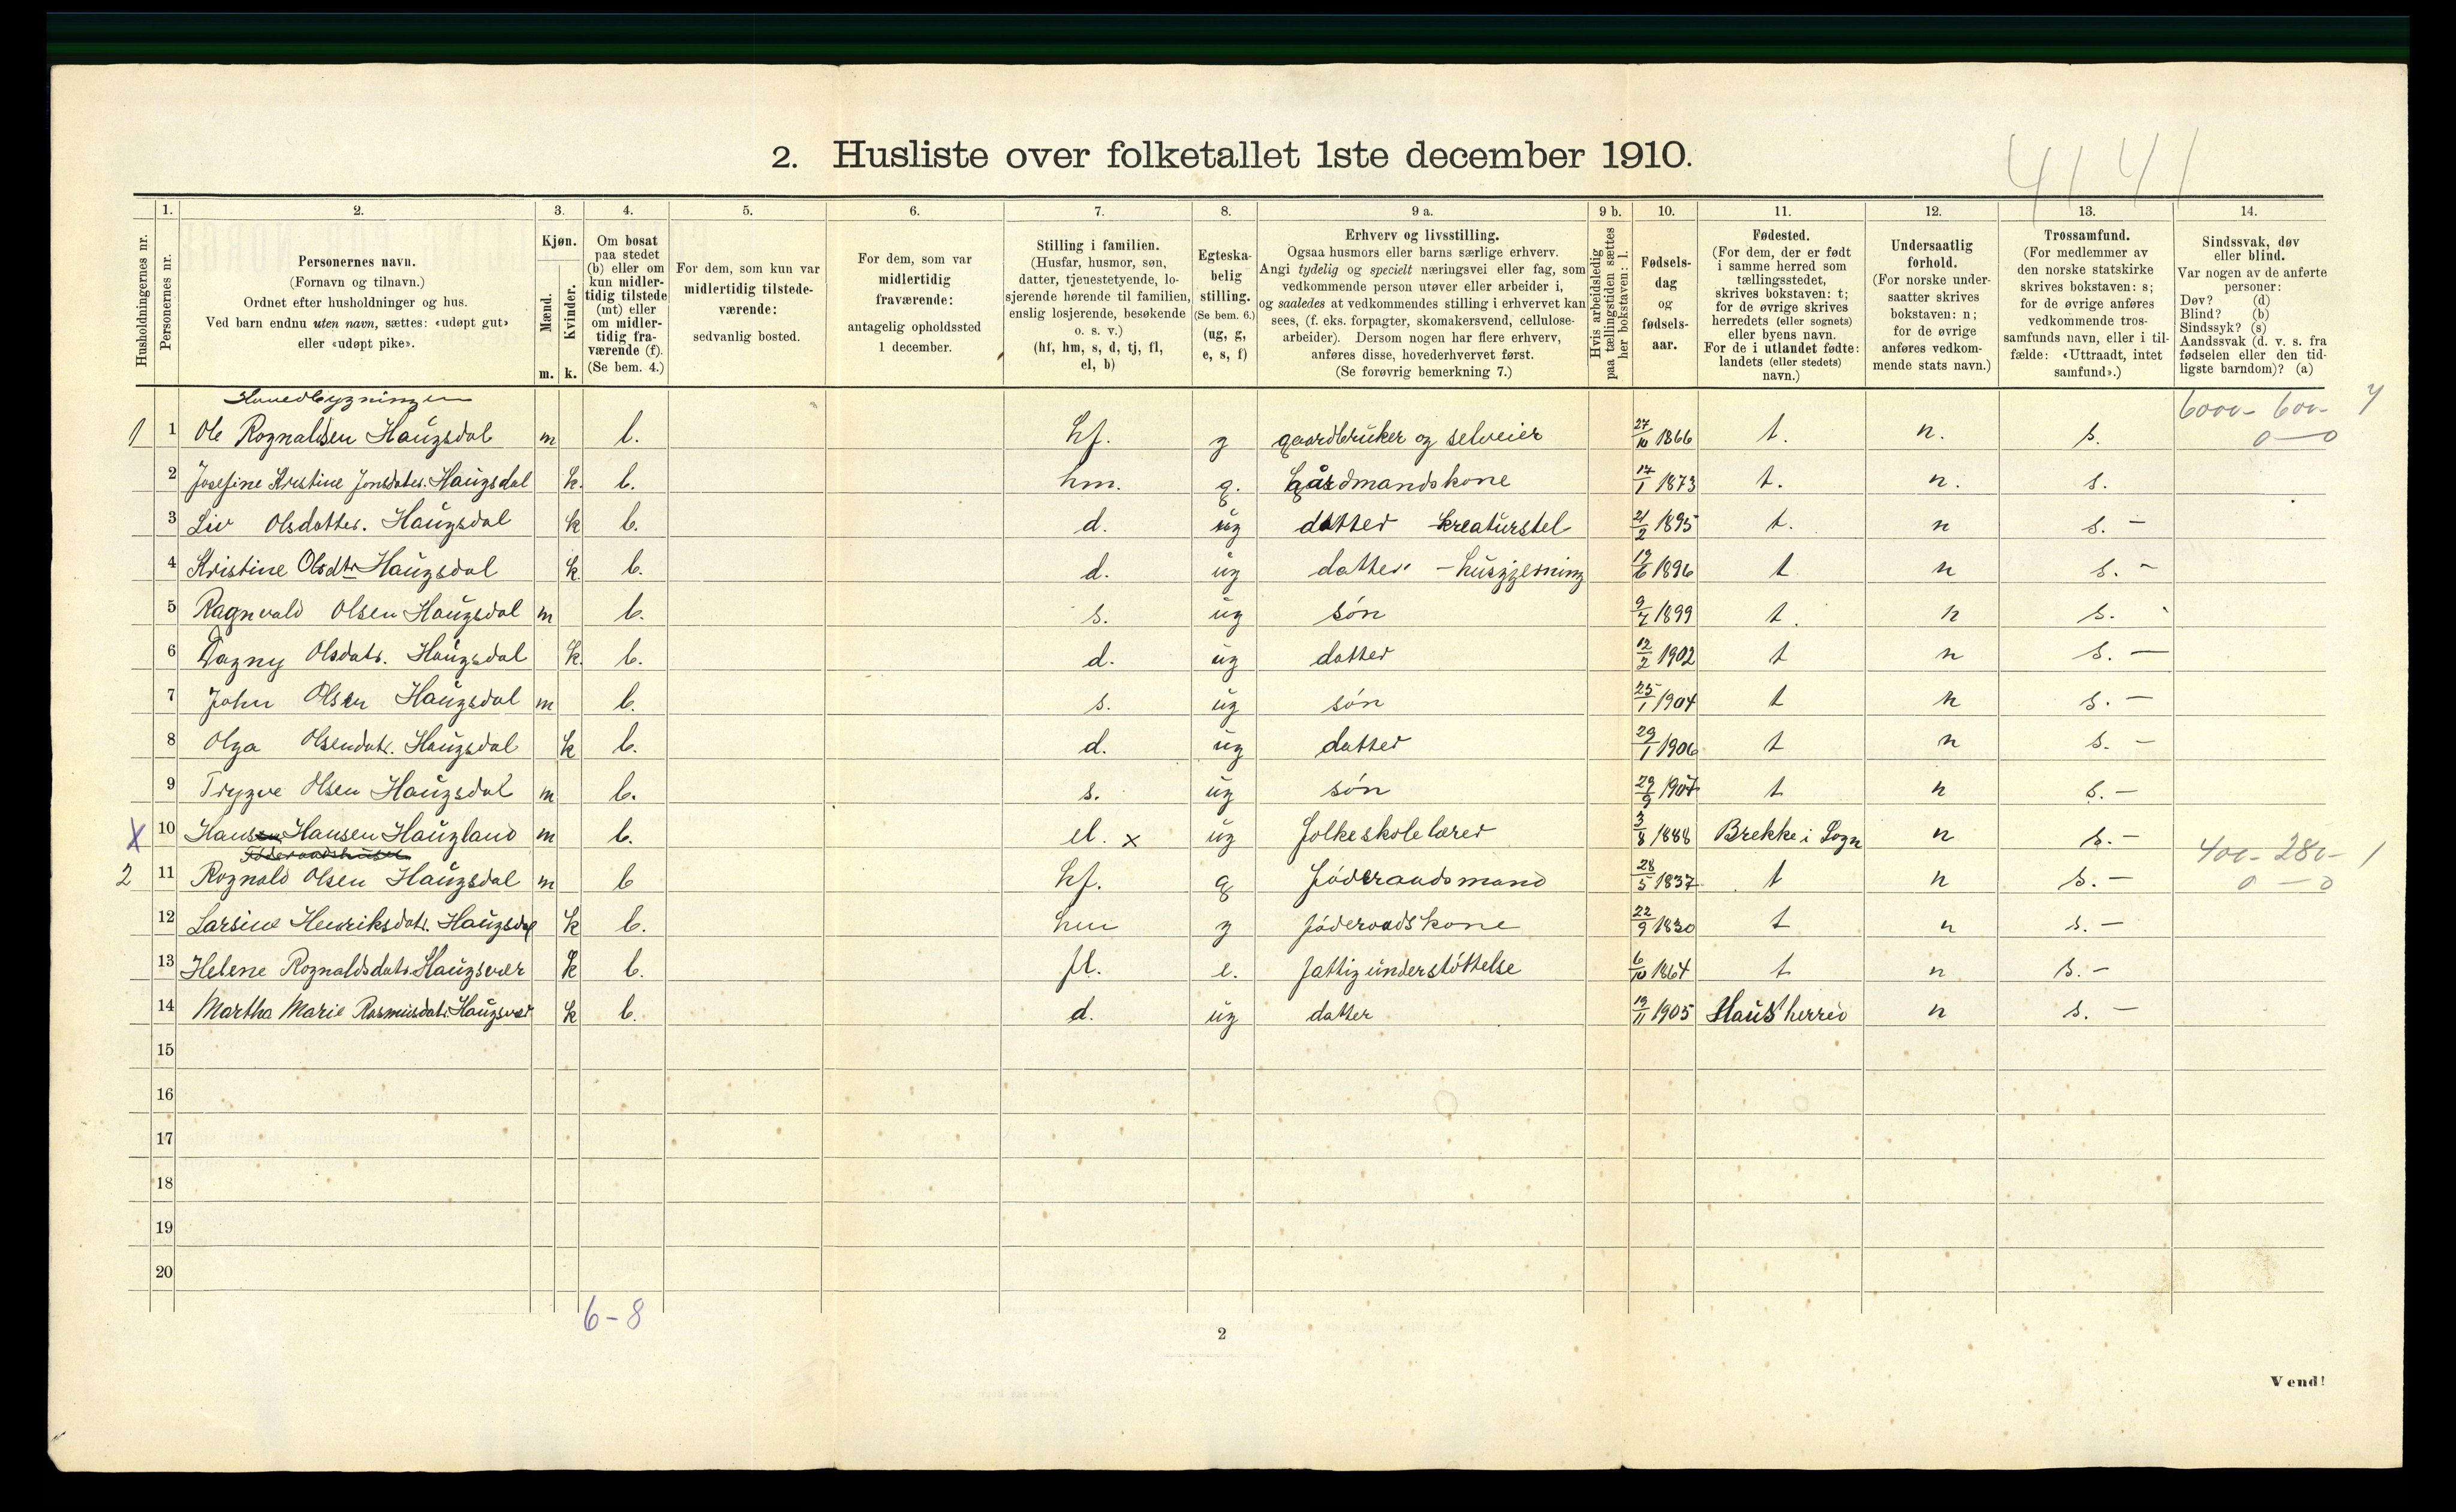 4141
2. Husliste over folketallet 1ste december 1910.
Husholdningernes nr.
1.
Personernes nr.
2.
Personernes navn.
(Fornavn og tilnavn.)
Ordnet efter husholdninger og hus.
Ved barn endnu uten navn, sættes: «udøpt gut»
eller «udøpt pike».
3.
Kjøn.
Mænd.
m.
Kvinder.
k.
4.
Om bosat
paa stedet
(b) eller om
kun midler-
tidig tilstede
(mt) eller
om midler-
tidig fra-
værende (f).
(Se bem. 4.)
5.
For dem, som kun var
midlertidig tilstede-
værende:
sedvanlig bosted.
6.
For dem, som var
midlertidig
fraværende:
antagelig opholdssted
1 december.
7.
Stilling i familien.
(Husfar, husmor, søn,
datter, tjenestetyende, lo-
sjerende hørende til familien,
enslig losjerende, besøkende
o. s. v.)
(hf, hm, s, d, tj, fl,
el, b)
8.
Egteska-
belig
stilling.
(Se bem. 6.)
(ug, g,
e, s, f)
9 a.
Erhverv og livsstilling.
Ogsaa husmors eller barns særlige erhverv.
Angi tydelig og specielt næringsvei eller fag, som
vedkommende person utøver eller arbeider i,
og saaledes at vedkommendes stilling i erhvervet kan
sees, (f. eks. forpagter, skomakersvend, cellulose-
arbeider). Dersom nogen har flere erhverv,
anføres disse, hovederhvervet først.
(Se forøvrig bemerkning 7.)
9 b.
Hvis arbeidsledig
paa tællingstiden sættes
her bokstaven: l.
10.
Fødsels-
dag
og
fødsels-
aar.
11.
Fødested.
(For dem, der er født
i samme herred som
tællingsstedet,
skrives bokstaven: t;
for de øvrige skrives
herredets (eller sognets)
eller byens navn.
For de i utlandet fødte:
landets (eller stedets)
navn.)
12.
Undersaatlig
forhold.
(For norske under-
saatter skrives
bokstaven: n;
for de øvrige
anføres vedkom-
mende stats navn.)
13.
Trossamfund.
(For medlemmer av
den norske statskirke
skrives bokstaven: s;
for de øvrige anføres
vedkommende tros-
samfunds navn, eller i til-
fælde: «Uttraadt, intet
samfund».)
14.
Sindssvak, døv
eller blind.
Var nogen av de anførte
personer:
Døv? (d)
Blind? (b)
Sindssyk? (s)
Aandssvak (d. v. s. fra
fødselen eller den tid-
ligste barndom)? (a)
Hovedbygningen
1 1 Ole Rognaldsen Haugsdal m b. hf. g gaardbruker og selveier 27/10 1866 t. n. s. 6000- 600- 4
0-0
2 Josefine Kristine Jonsdatr. Haugsdal k. b. hm. g. gårdmandskone 17/1 1873 t. n. s.
3 Liv Olsdatter. Haugsdal k b. d. ug datter kreaturstel 21/2 1895 t. n s. -
4 Kristine Olsdtr Haugsdal k. b. d. ug datter - husgjerning 19/6 1896 t n s. -
5 Ragnvald Olsen Haugsdal m b. s. ug søn 9/7 1899 t. n s.
6 Dagny Olsdatr. Haugsdal k. b. d. ug datter 12/2 1902 t n s. -
7 John Olsen Haugsdal m b. s. ug søn 25/1 1904 t n s. -
8 Olga Olsendatr. Haugsdal k b. d. ug datter 29/1 1906 t n s. -
9 Trygve Olsen Haugsdal m b. s. ug søn 29/9 1907 t n s. -
X 10 Hans Hansen Haugland m b. el. x ug folkeskolelærer 3/8 1888 Brekke i Sogn n s. -
Føderaadshuset
2 11 Rognald Olsen Haugsdal m b hf. g føderaadsmand 28/5 1837 t n s. - 400- 280- 1
0-0
12 Larsine Henriksdatr. Haugsdal k b. hm g føderaadskone 22/9 1830 t n s. -
13 Helene Rognaldsdatr. Haugsvær k b. fl. e. fattigunderstøttelse 6/10 1864 t n s. -
14 Martha Marie Rasmusdatr. Haugsvær k b. d. ug datter 19/11 1905 Haus herred n s. -
15
16
17
18
19
20
6-8
2
Vend!